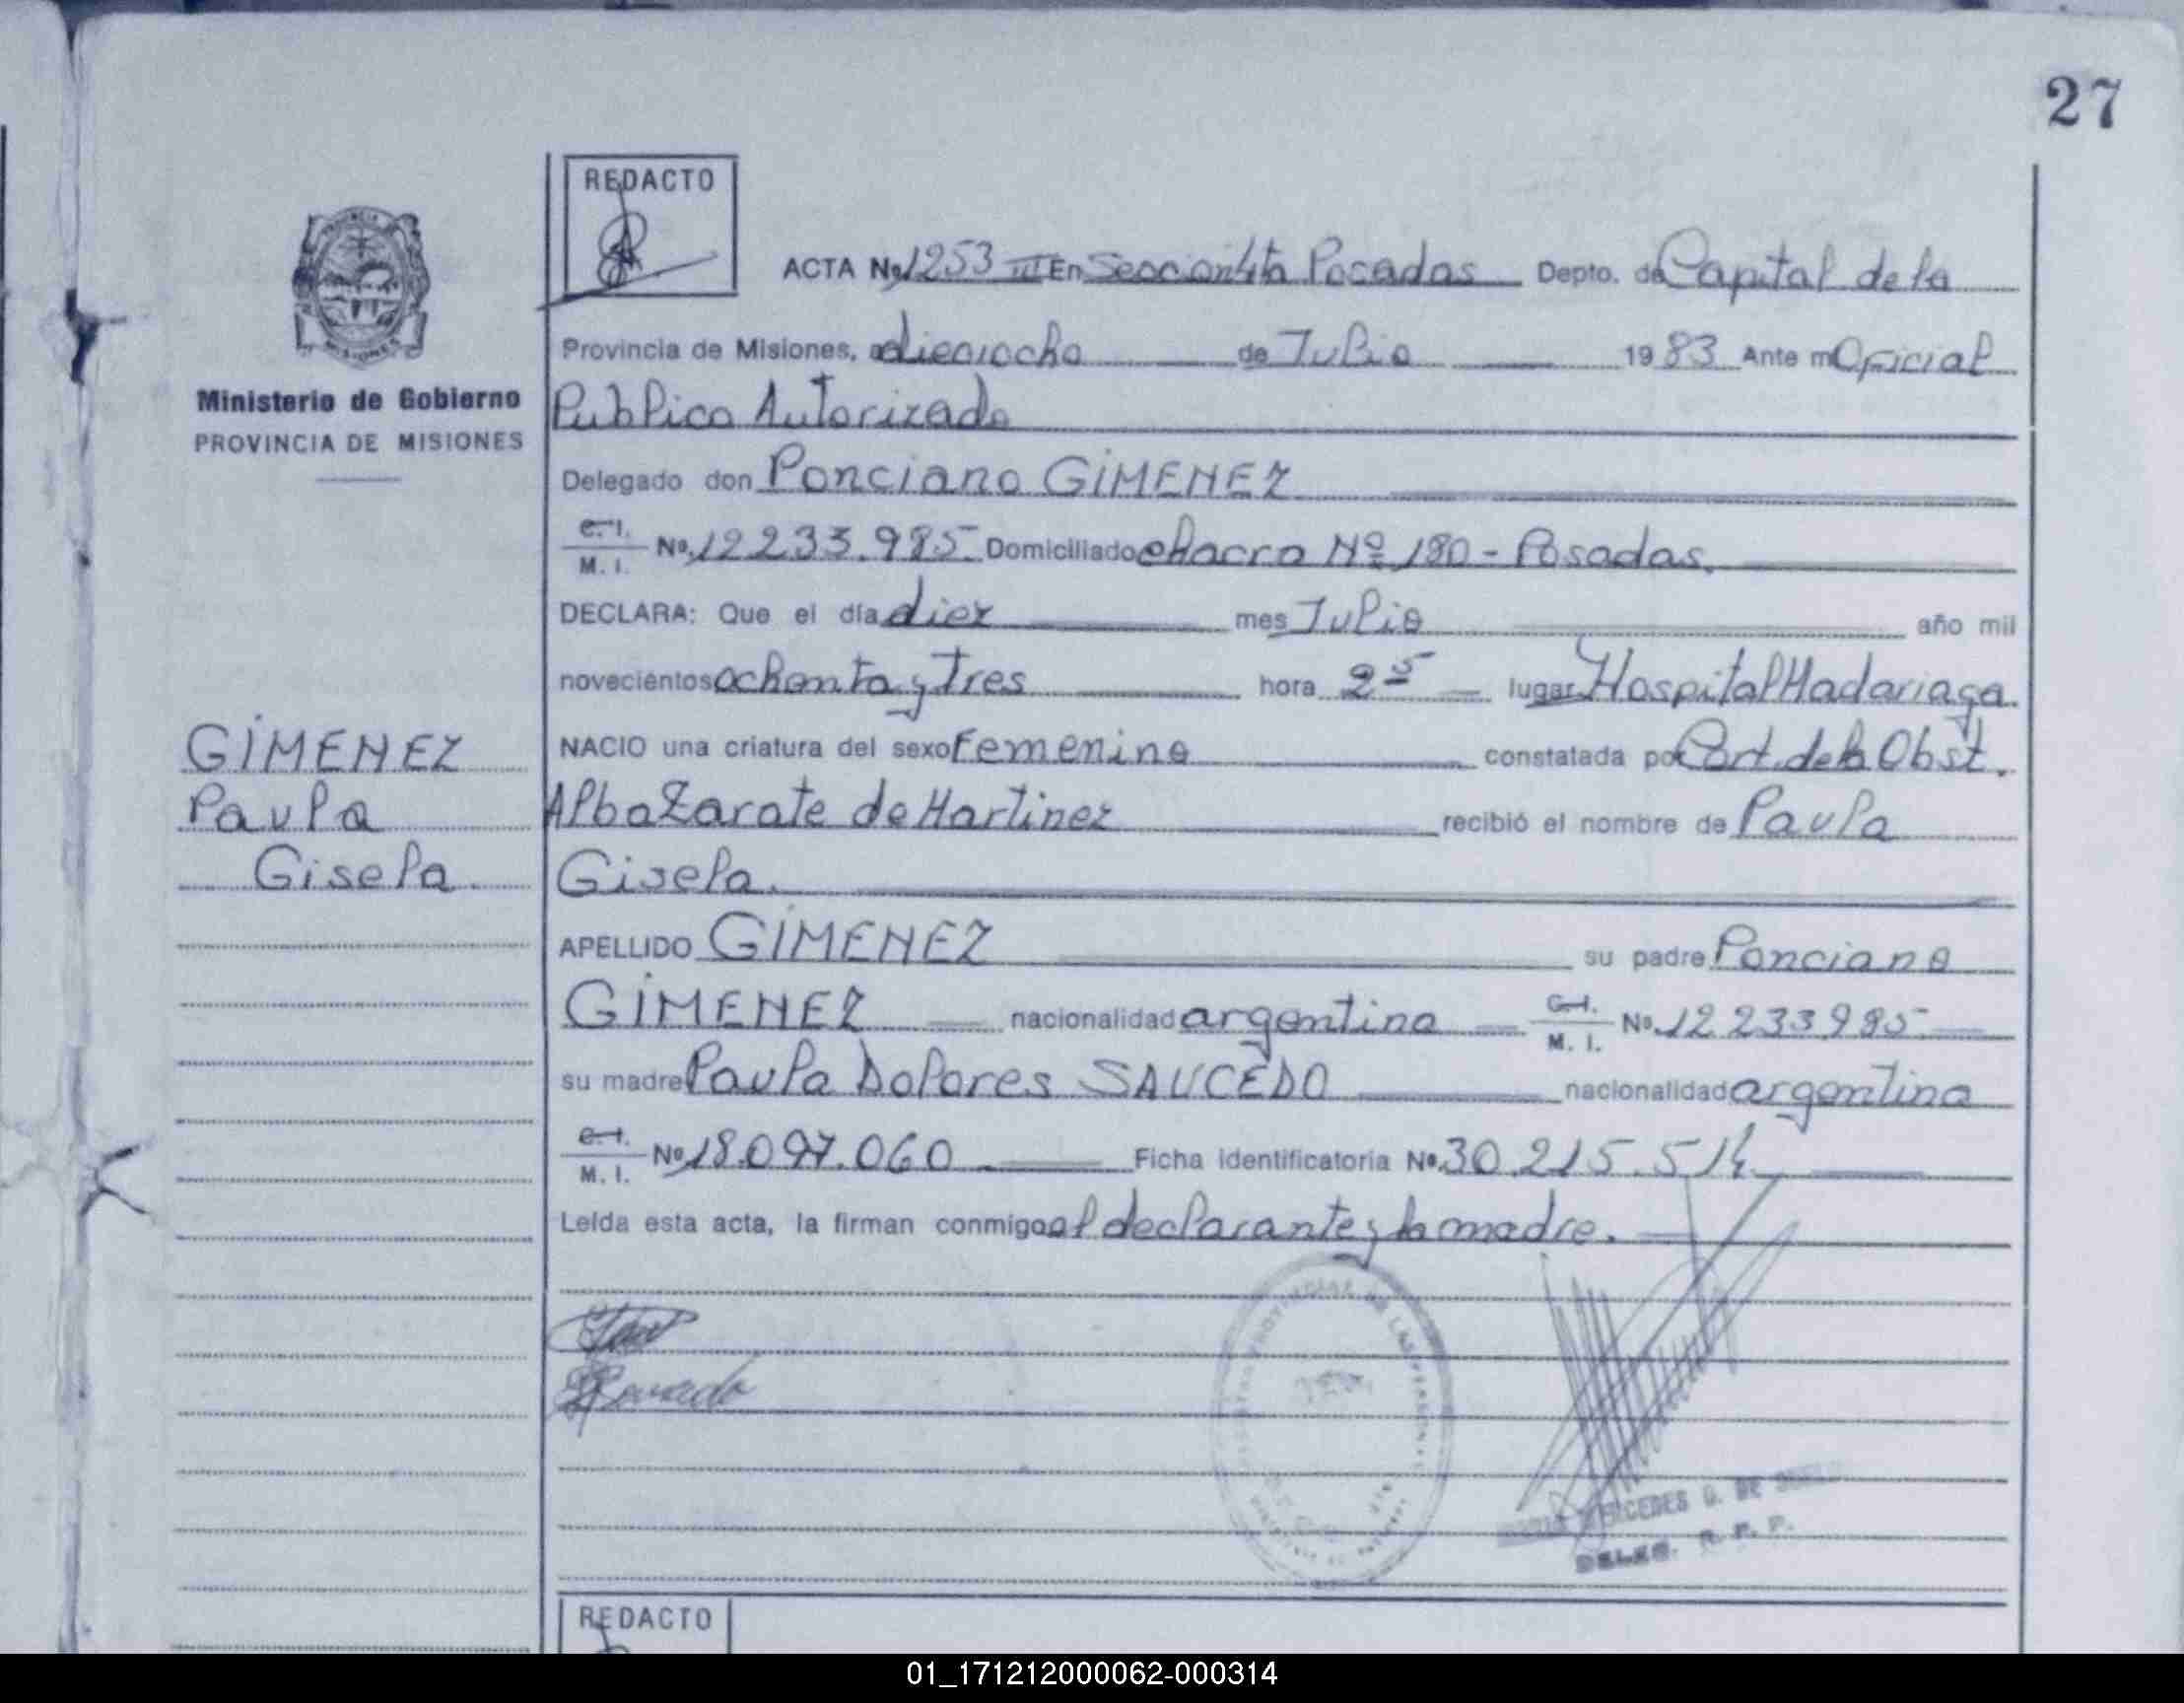 27
REDACTO
ACTA Nº 1253 III En Sección 4ta Posadas Depto. de Capital de la
Provincia de Misiones, a dieciocho de Julio 1983 Ante mi Oficial
Publico Autorizado
Ministerio de Gobierno
PROVINCIA DE MISIONES
Delegado don Ponciano GIMENEZ
C. I.
M. I. Nº 12233.985 Domiciliado chacra Nº 180 - Posadas.
DECLARA: Que el día diez mes Julio año mil
novecientos ochenta y Tres hora 2 5 lugar Hospital Madariaga.
GIMENEZ
Paula
Gisela.
NACIO una criatura del sexo Femenino constatada por Cert. de la Obst.
Alba Zarate de Martinez recibió el nombre de Paula
Gisela.
APELLIDO GIMENEZ su padre Ponciano
GIMENEZ nacionalidad argentina C. I.
M. I. Nº 12.233.985
su madre Paula Dolores SAUCEDO nacionalidad argentina
C. I.
M. I. Nº 18.097.060 Ficha identificatoria Nº 30.215.514
Leída esta acta, la firman conmigo el declarante y la madre.
MERCEDES G. DE
DELEG. R. P. P.
REDACTO
01_171212000062-000314